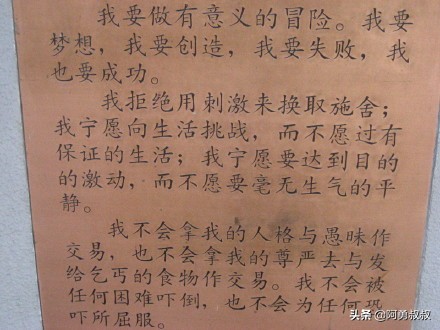 我要做有意义的冒险。我要
梦想，我要创造，我要失败，我
也要成功。
我拒绝用刺激来换取施舍；
我宁愿向生活挑战，而不愿过有
保证的生活；我宁愿要达到目的
的激动，而不愿要毫无生气的平
静。
我不会拿我的人格与愚昧作
交易，也不会拿我的尊严去与发
给乞丐的食物作交易。我不会被
任何困难吓倒，也不会为任何恐
吓所屈服。
头条 @阿勇叔叔